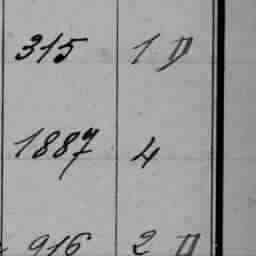 315 1 D
1887 4
916 2 D